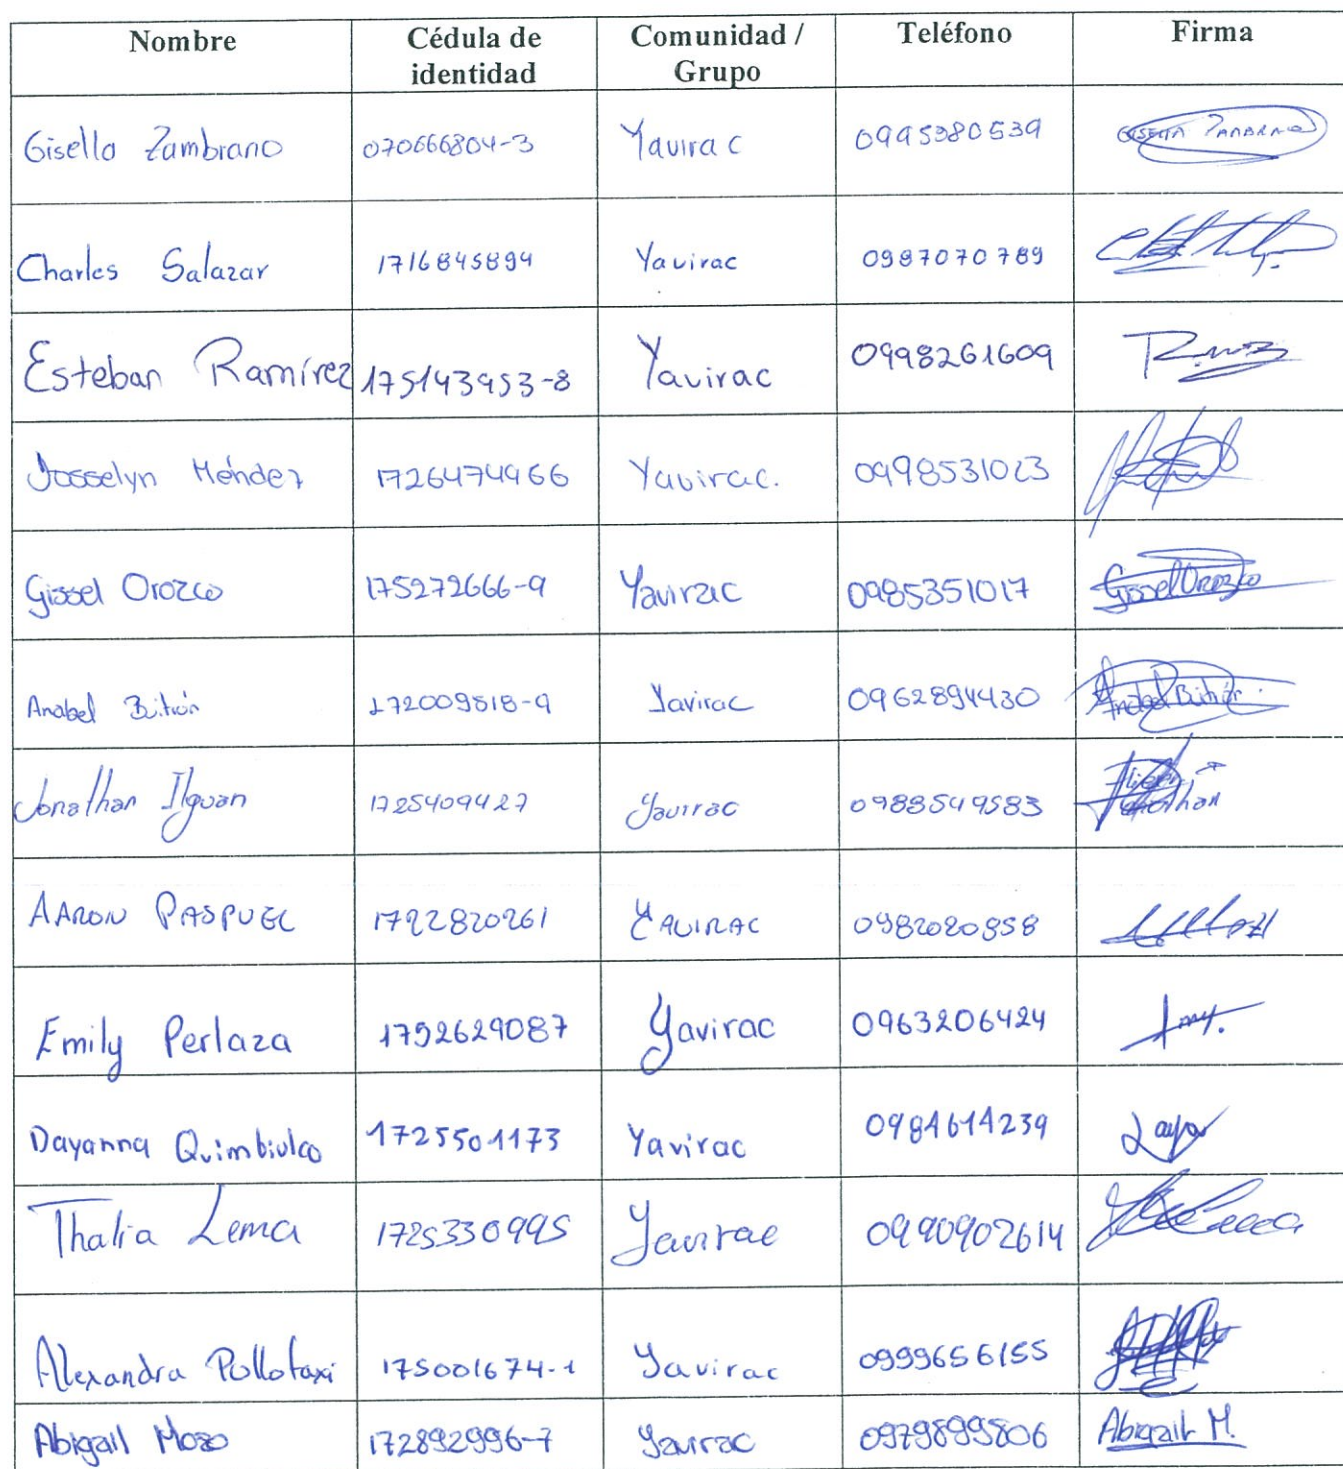 Nombre Cédula de identidad Comunidad / Grupo Teléfono Firma
Gisella Zambrano 070666804-3 Yavirac 0995380539 GISELLA ZAMBRANO
Charles Salazar 1716845894 Yavirac 0987070789
Esteban Ramírez 175143953-8 Yavirac 0998261609
Josselyn Méndez 1726474966 Yavirac. 0998531023
Gissel Orozco 175272666-9 Yavirac 0985351017 Gissel Orozco
Anabel Buitrón 172009518-9 Yavirac 0962894430 Anabel Buitrón
Jonathan Ilguan 1725409427 Yavirac 0988549583 Jonathan
AARON PASPUEL 1722820261 YAVIRAC 0982020858
Emily Perlaza 1752629087 Yavirac 0963206424
Dayanna Quimbiulco 1725501173 Yavirac 0984614239
Thalia Lema 1725330995 Yavirac 0990902614
Alexandra Pullotaxi 175001674-1 Yavirac 0999656155
Abigail Mozo 172892996-7 Yavirac 0979899806 Abigail M.